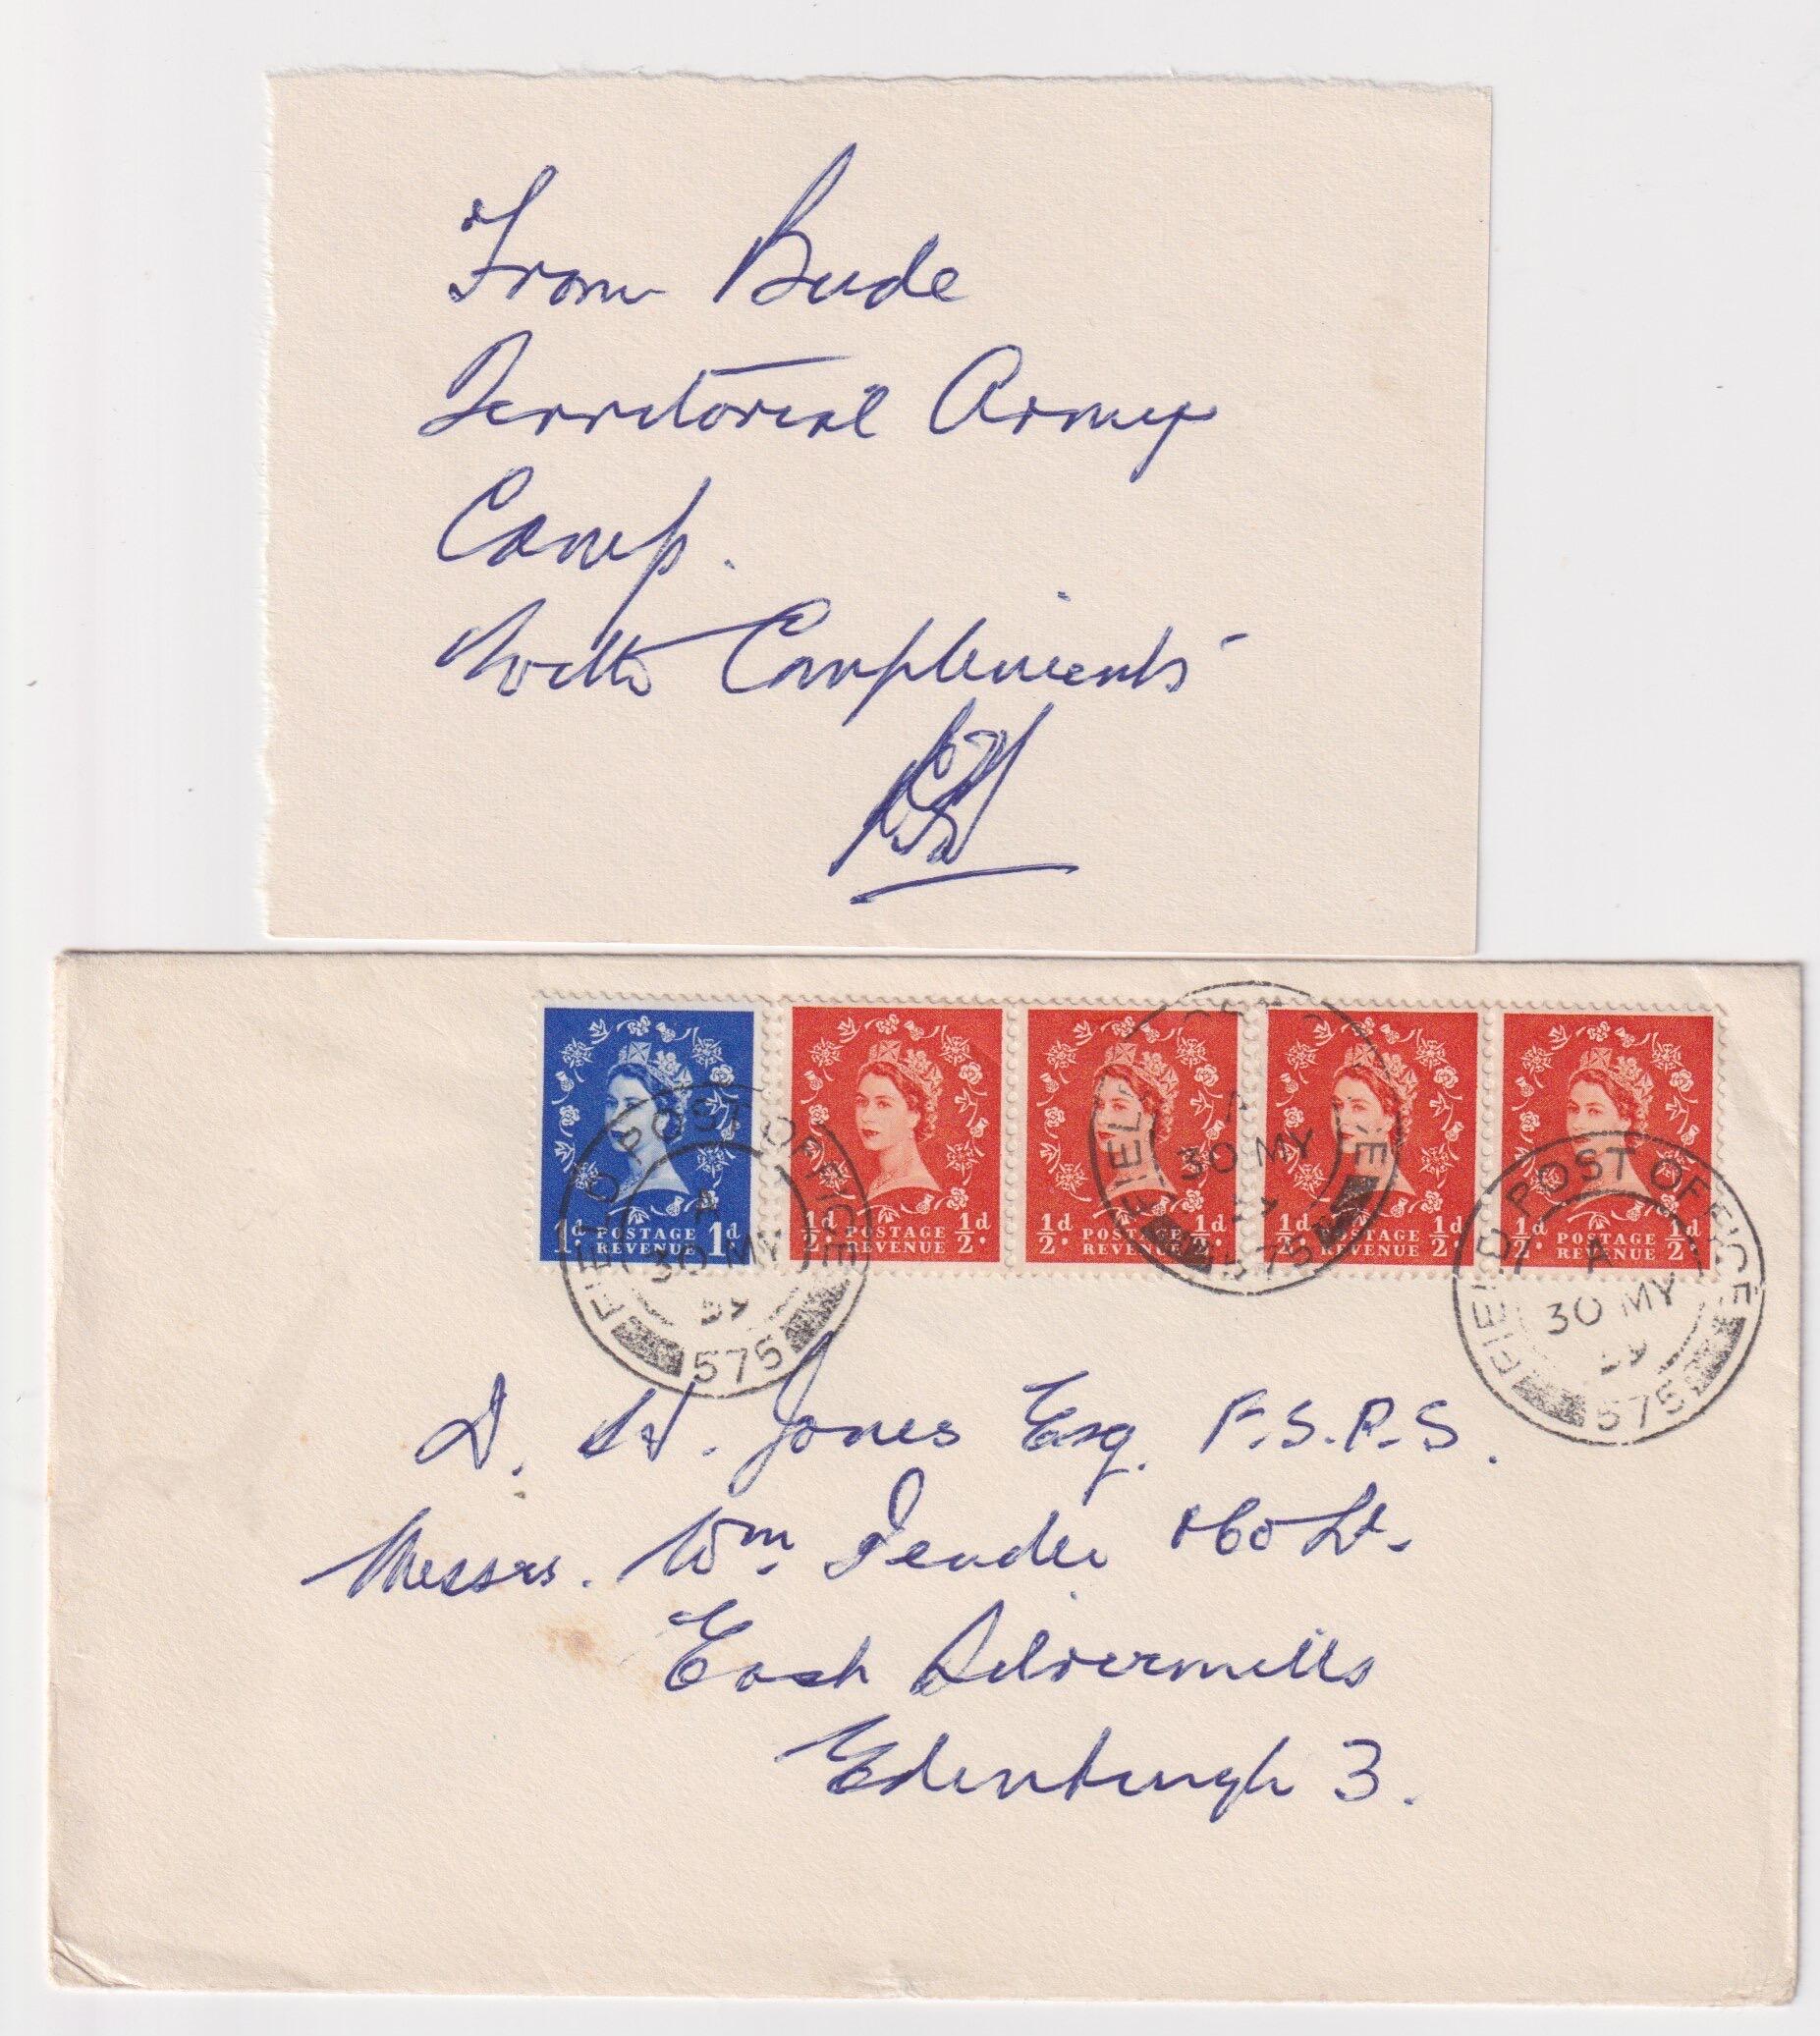 From Bude
Territorial Army
Camp.
With Compliments
1d. POSTAGE REVENUE 1d.
½d. POSTAGE REVENUE ½d.
½d. POSTAGE REVENUE ½d.
½d. POSTAGE REVENUE ½d.
½d. POSTAGE REVENUE ½d.
FIELD POST OFFICE
A
30 MY
59
575
FIELD
30 MY
575
FIELD POST OFFICE
A
30 MY
59
575
D. H. Jones Esq. F.S.P.S.
Messrs. Wm. &Co Ld.
East Silvermills
Edinburgh 3.